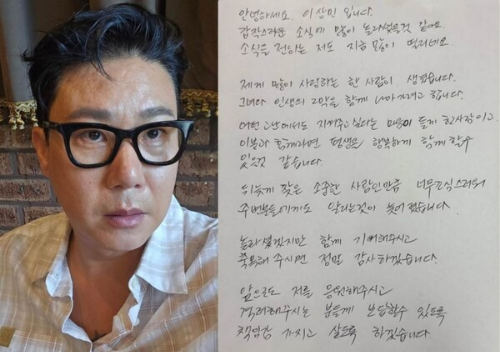 안녕하세요. 이상민 입니다.
갑작스러운 소식에 많이 놀라셨을것 같아요.
소식을 전하는 저도 지금 많이 떨리네요.
제게 많이 사랑하는 한 사람이 생겼습니다.
그녀와 인생의 2막을 함께 나아가려고 합니다.
어떤 고난에서도 지켜주고 싶다는 마음이 들게 한 사람이고
이분과 함께라면 평생을 행복하게 함께 할수
있을것 같습니다.
뒤늦게 찾은 소중한 사람인만큼 너무 조심스러워
주변분들에게도 알리는것이 늦어졌습니다.
놀라셨겠지만 함께 기뻐해주시고
축복해 주시면 정말 감사하겠습니다.
앞으로도 저를 응원해주시고
격려해주시는 분들께 보답할수 있도록
책임감 가지고 살도록 하겠습니다.